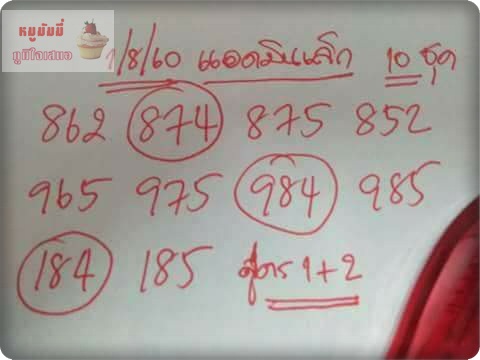 หมูมัมมี่
ภูมิใจเสนอ
1/8/60 แอดมินเล็ก 10 ชุด
862 874 875 852
965 975 984 985
184 185 สูตร 1+2